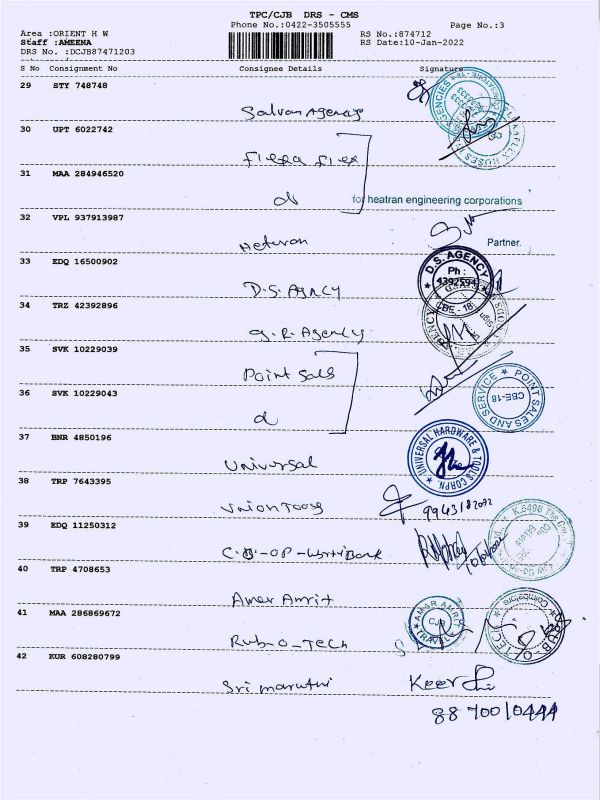 TPC/CJB DRS - CMS
Phone No.:0422-3505555 Page No.:3
Area :ORIENT H W RS No.:874712
Staff :AMEENA RS Date:10-Jan-2022
DRS No. :DCJB87471203
S No Consignment No Consignee Details Signature
29 STY 748748
Salvan Agency
30 UPT 6022742
31 MAA 284946520
for heatran engineering corporations
32 VPL 937913987
Partner.
33 EDQ 16500902
D.S. Agency
D.S. AGENCY
Ph :
4392594
CBE - 18
34 TRZ 42392896
G.R. Agency
35 SVK 10229039
Point Sals
36 SVK 10229043
POINT SALES AND SERVICE
CBE-18
37 BNR 4850196
Universal
UNIVERSAL HARDWARE & TOOLS CORPN.
38 TRP 7643395
Union Tools
39 EDQ 11250312
40 TRP 4708653
Amar Amrit
AMAR AMRIT TRAVEL
CJB
41 MAA 286869672
Rub-O-Tech
RUB-O-TECH
Coimbatore
42 KUR 608280799
Sri maruthi
8870010444